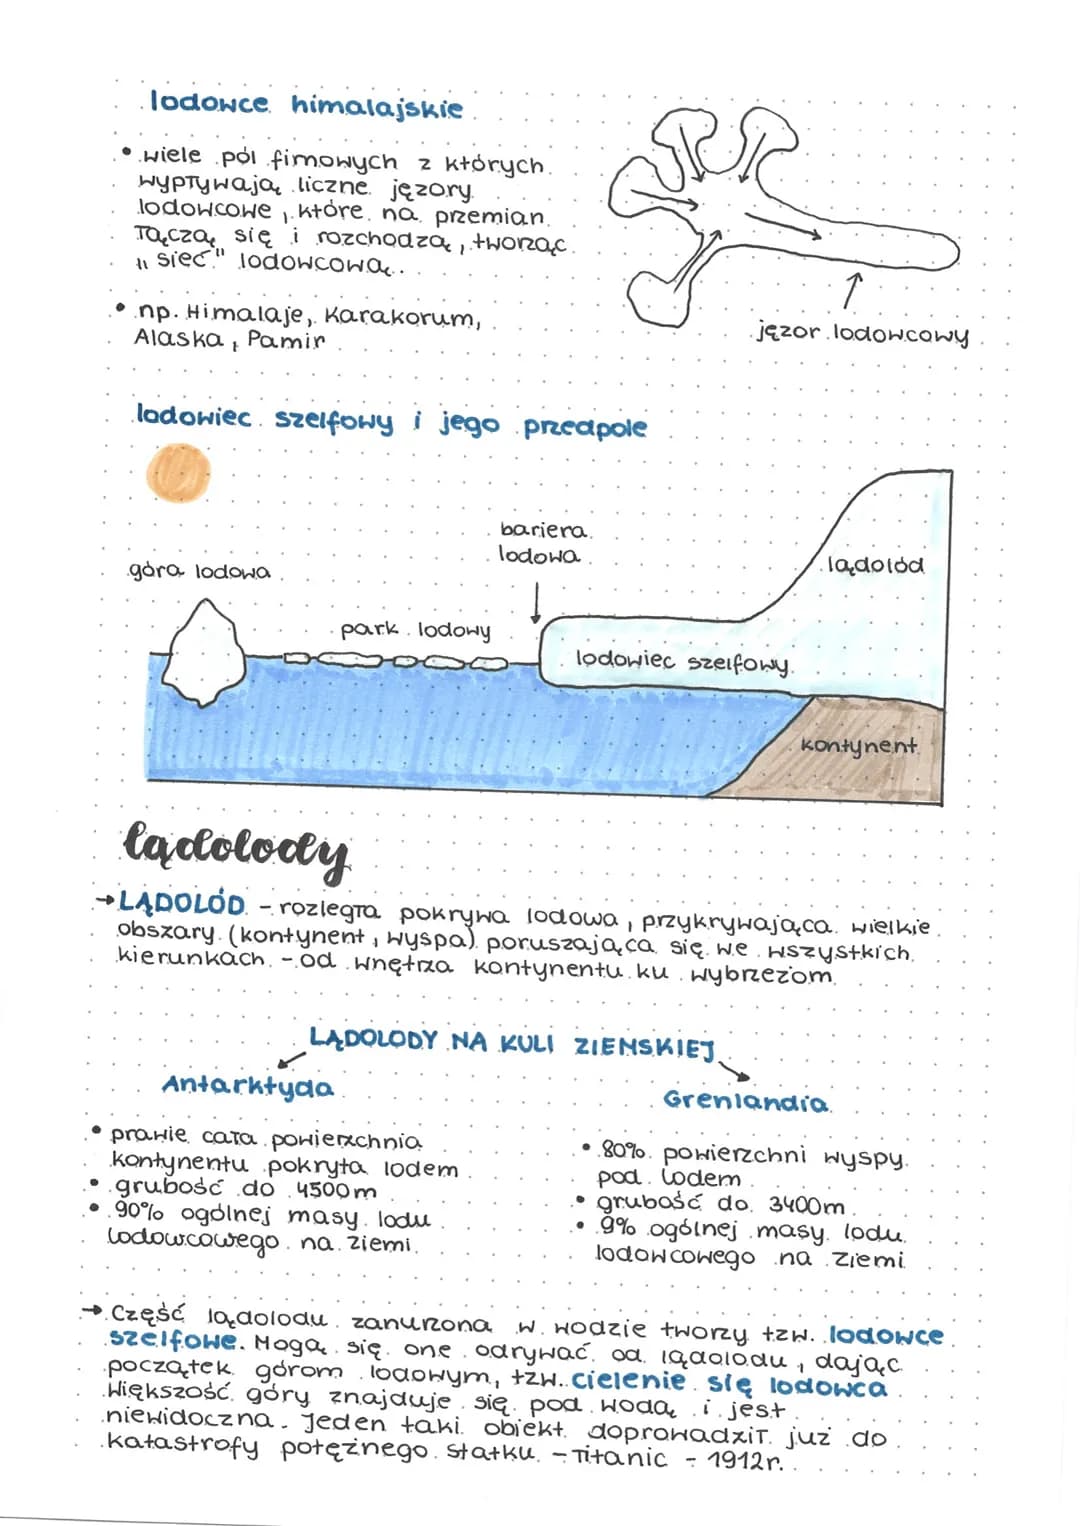 lodowce himalajskie
• wiele pól firnowych z których
wypływają liczne jęzory
lodowcowe, które na przemian
łączą się i rozchodzą, tworząc
„sieć" lodowcową.
• np. Himalaje, Karakorum,
Alaska, Pamir
jęzor lodowcowy
lodowiec szelfowy i jego przedpole
bariera
lodowa
lądolód
góra lodowa
park lodowy
lodowiec szelfowy
kontynent
lądolody
→ LĄDOLÓD - rozległa pokrywa lodowa, przykrywająca wielkie
obszary (kontynent, wyspa) poruszająca się we wszystkich
kierunkach - od wnętrza kontynentu ku wybrzeżom.
LĄDOLODY NA KULI ZIEMSKIEJ
Antarktyda
• prawie cała powierzchnia
kontynentu pokryta lodem
• grubość do 4500m
• 90% ogólnej masy lodu
lodowcowego na ziemi
Grenlandia
• 80% powierzchni wyspy
pod lodem
• grubość do 3400m
• 9% ogólnej masy lodu
lodowcowego na ziemi
→ Część lądolodu zanurzona w wodzie tworzy tzw. lodowce
szelfowe. Mogą się one odrywać od lądolodu, dając
początek górom lodowym, tzw. cielenie się lodowca
Większość góry znajduje się pod wodą i jest
niewidoczna. Jeden taki obiekt doprowadził już do
katastrofy potężnego statku - Titanic - 1912r.